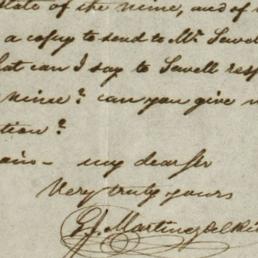 state of the mine, and of
a copy to send to Mr. Sewell
hat can I say to Sewell resp
mine? can you give m
tion?
ain – my dear Sir
Very truly yours
G. J. Martinez del Rio